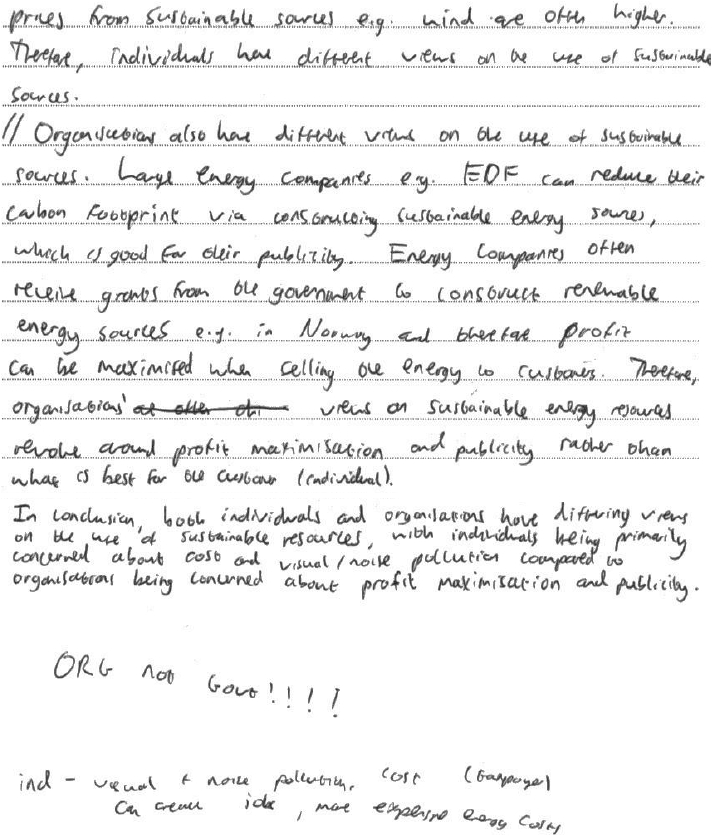 prices from sustainable sources e.g. wind are often higher.
Therefore, individuals have different views on the use of sustainable
sources.
// Organisations also have different views on the use of sustainable
sources. Large energy companies e.g. EDF can reduce their
carbon footprint via constructing sustainable energy sources,
which is good for their publicity. Energy Companies often
receive grants from the government to construct renewable
energy sources e.g. in Norway and therefore profit
can be maximised when selling the energy to customers. Therefore,
organisations' views on sustainable energy resources
revolve around profit maximisation and publicity rather than
what is best for the customer (individual).
In conclusion, both individuals and organisations have differing views
on the use of sustainable resources, with individuals being primarily
concerned about cost and visual/noise pollution compared to
organisations being concerned about profit maximisation and publicity.
ORG not Govt!!!!
ind - visual + noise pollution, cost (taxpayer)
can create jobs, more expensive energy costs